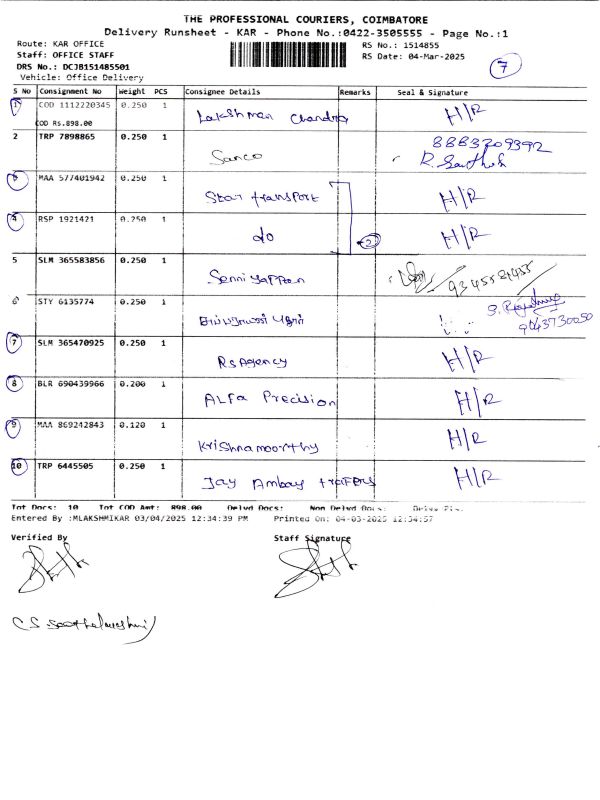 THE PROFESSIONAL COURIERS, COIMBATORE
Delivery Runsheet - KAR - Phone No.:0422-3505555 - Page No.:1
Route: KAR OFFICE
RS No.: 1514855
Staff: OFFICE STAFF
RS Date: 04-Mar-2025
DRS No.: DCJB151485501
7
Vehicle: Office Delivery
S No Consignment No Weight PCS Consignee Details Remarks Seal & Signature
1 COD 1112220345 0.250 1 Lakshman Chandra H/R
COD Rs.898.00
2 TRP 7898865 0.250 1 Sanco 8883709392
3 MAA 577401942 0.250 1 Star transport H/R
4 RSP 1921421 0.250 1 do 2 H/R
5 SLM 365583856 0.250 1 Senniyappan
6 STY 6135774 0.250 1 9043730050
7 SLM 365470925 0.250 1 RS Agency H/R
8 BLR 690439966 0.200 1 ALFa Precision H/R
9 MAA 869242843 0.120 1 Krishnamoorthy H/R
10 TRP 6445505 0.250 1 Jay Ambay H/R
Tot Docs: 10 Tot COD Amt: 898.00 Delvd Docs: Non Delvd Docs:
Entered By :MLAKSHMIKAR 03/04/2025 12:34:39 PM Printed On: 04-03-2025 12:34:57
Verified By
Staff Signature